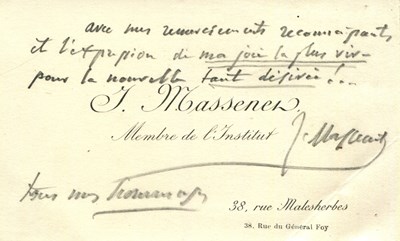 avec mes remerciements reconnaissants
et l'expression de ma joie la plus vive
pour la nouvelle tant désirée!..
J. Massenet
Membre de l'Institut
J. Massenet
tous mes hommages
38, rue Malesherbes
38, Rue du Général Foy